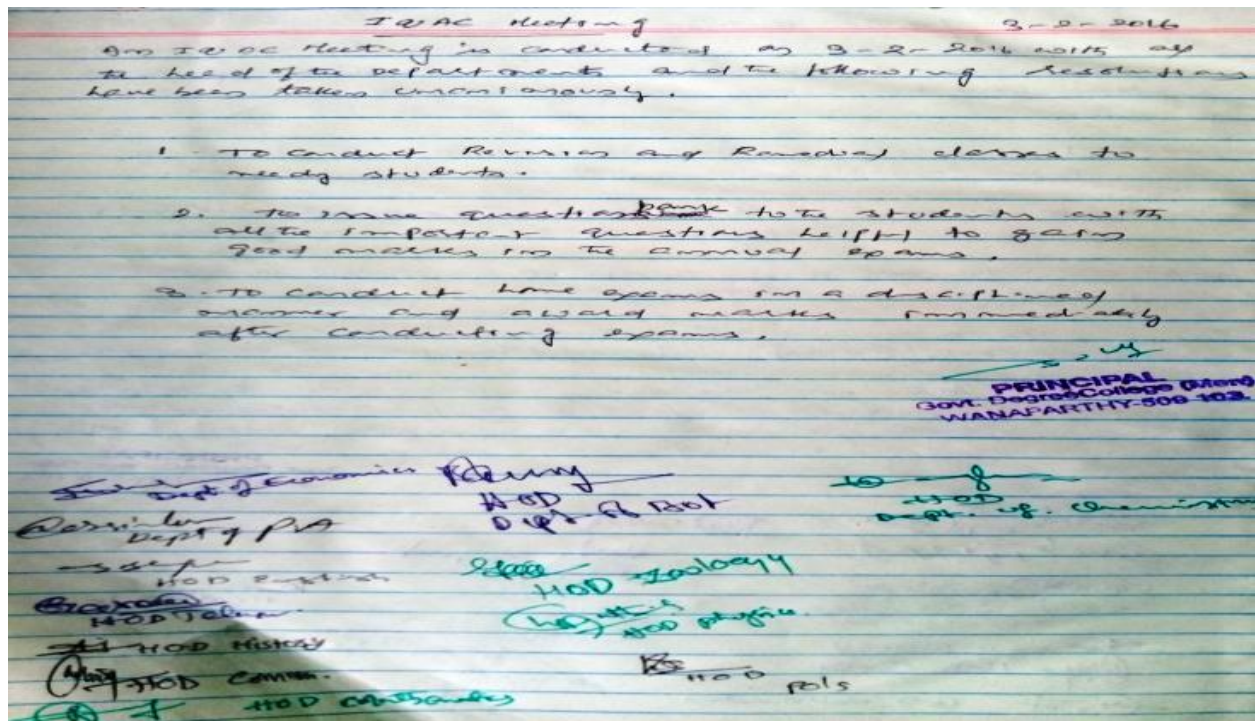 IQAC Meeting 3-2-2016
An IQAC Meeting is conducted on 3-2-2016 with all
the head of the Departments and the following resolutions
have been taken unanimously.
1. To conduct Revision and Remedial classes to
needy students.
2. To issue question bank to the students with
all the important questions helpful to gain
good marks in the annual exams.
3. To conduct home exams in a disciplined
manner and award marks immediately
after conducting exams.
PRINCIPAL
Govt. Degree College (Men)
WANAPARTHY-509 103
Dept of Economics
HOD
Dept. of Bot
HOD
Dept. of. Chemistry
Dept of PA
HOD English
HOD Zoology
HOD Telugu
HOD physics
HOD History
HOD Comm.
HOD
Pols
HOD Mathematics